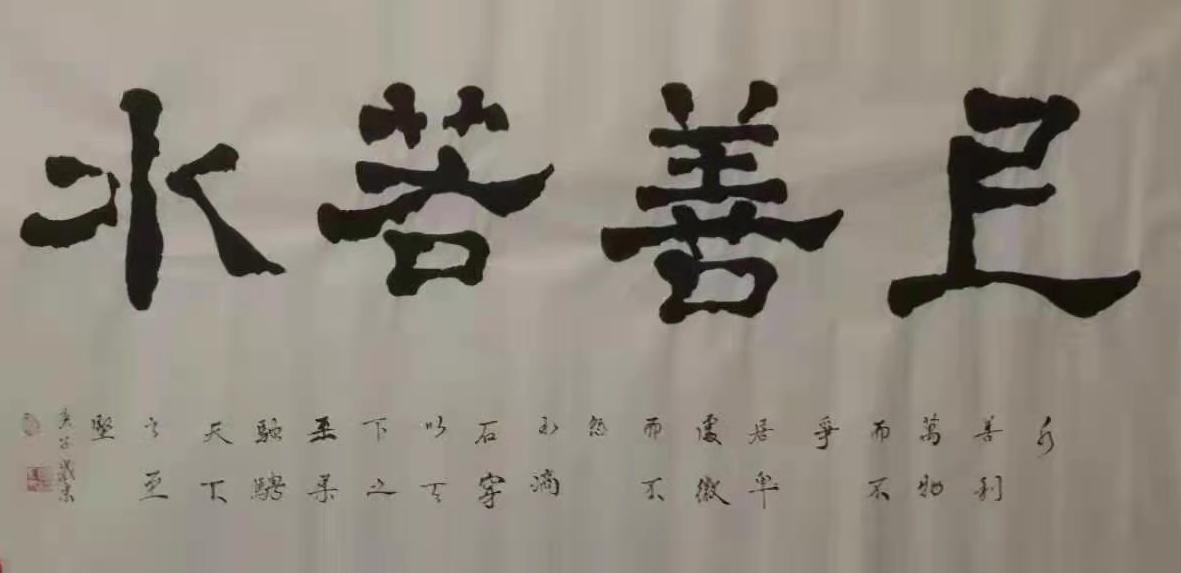 上善若水
水
善利
萬物
而不
爭
居卑
處微
而不
怨
水滴
石穿
以天
下之
至柔
馳騁
天下
之至
堅